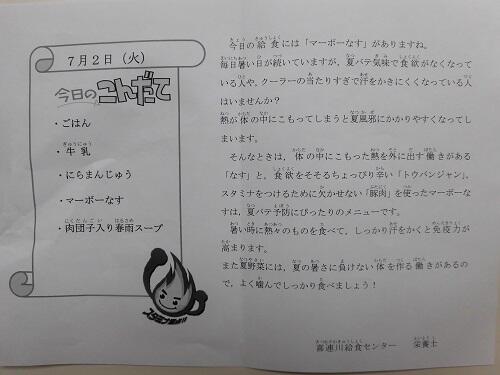 7月2日（火）
今日のこんだて
・ごはん
・牛乳
・にらまんじゅう
・マーボーなす
・肉団子入り春雨スープ
今日の給食には「マーボーなす」がありますね。
毎日暑い日が続いていますが、夏バテ気味で食欲がなくなって
いる人や、クーラーの当たりすぎで汗をかきにくくなっている人
はいませんか？
熱が体の中にこもってしまうと夏風邪にかかりやすくなってし
まいます。
そんなときは、体の中にこもった熱を外に出す働きがある
「なす」と、食欲をそそるちょっぴり辛い「トウバンジャン」、
スタミナをつけるために欠かせない「豚肉」を使ったマーボーな
すは、夏バテ予防にぴったりのメニューです。
暑い時に熱々のものを食べて、しっかり汗をかくと免疫力が
高まります。
また夏野菜には、夏の暑さに負けない体を作る働きがあるの
で、よく噛んでしっかり食べましょう！
喜連川給食センター　栄養士